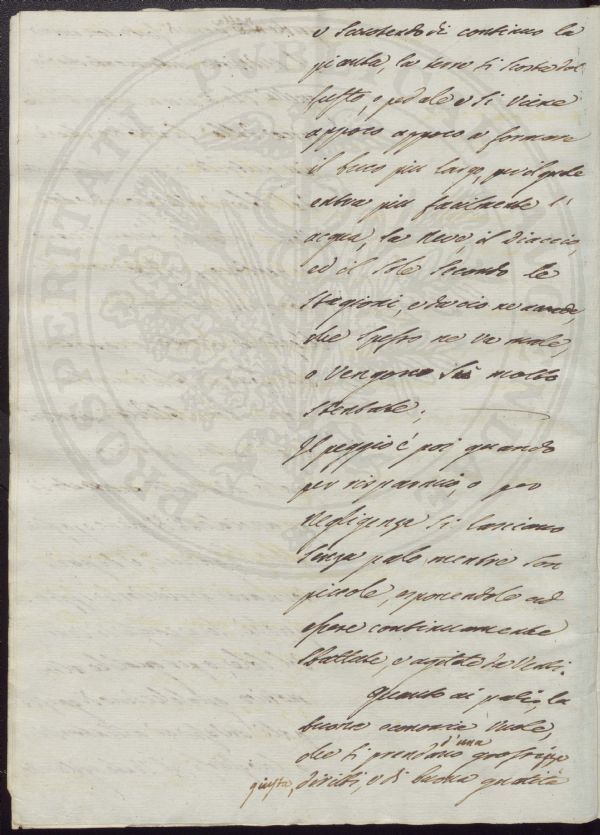 e scuotendo di continuo la
pianta, la terra si scosta dal
fusto, o pedale e si viene
appoco appoco a formare
il buco più largo, per il quale
entra più facilmente l'
acqua, la neve, il diaccio,
ed il sole secondo le
stagioni, e da ciò ne
che spesso ne va male,
o vengono su molto
stentate;
Il peggio è poi quando
per risparmio, o per
negligenza si lasciano
senza palo, mentre son
piccole, esponendole ad
essere continuamente
sbattute, e agitate da venti.
Quanto ai pali, la
buona economia vuole,
che si prendano d'una grossezza
giusta, diritti, e di buona qualità
PROSPERITATI PUBLICAE AUGENDAE